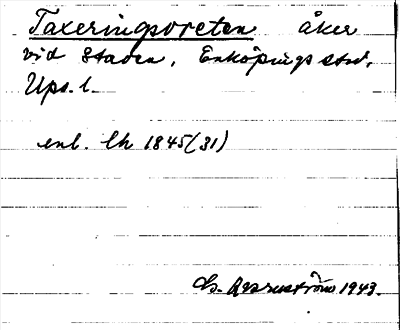 Taxeringsvreten åker
vid Staden, Enköpings stad,
Ups. l.
enl. Ch 1845(31)
1943.